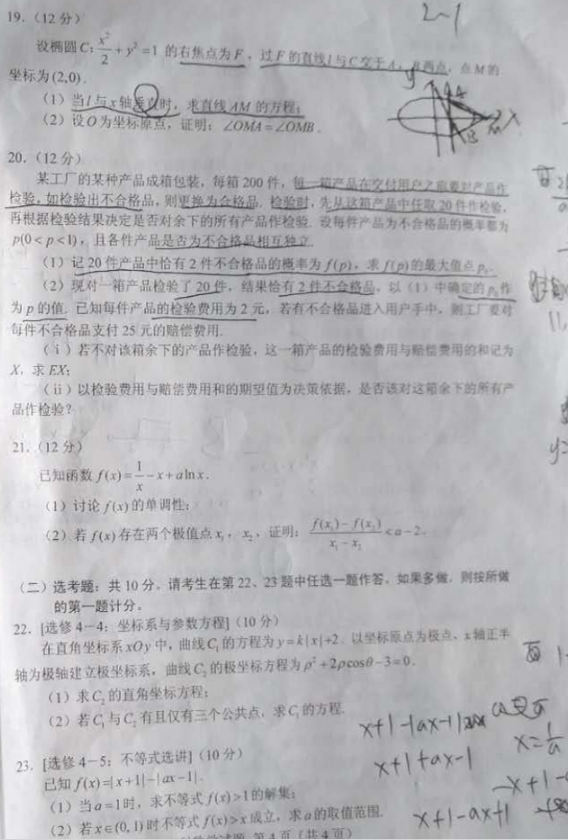 2-1
19.（12 分）
设椭圆 C: x²/2 + y² = 1 的右焦点为 F，过 F 的直线 l 与 C 交于 A，B 两点，点 M 的
坐标为 (2,0).
（1）当 l 与 x 轴垂直时，求直线 AM 的方程；
（2）设 O 为坐标原点，证明：∠OMA = ∠OMB.
20.（12 分）
某工厂的某种产品成箱包装，每箱 200 件，每一箱产品在交付用户之前要对产品作
检验，如检验出不合格品，则更换为合格品. 检验时，先从这箱产品中任取 20 件作检验，
再根据检验结果决定是否对余下的所有产品作检验. 设每件产品为不合格品的概率都为
p(0<p<1)，且各件产品是否为不合格品相互独立.
（1）记 20 件产品中恰有 2 件不合格品的概率为 f(p)，求 f(p) 的最大值点 p₀.
（2）现对一箱产品检验了 20 件，结果恰有 2 件不合格品，以（1）中确定的 p₀ 作
为 p 的值. 已知每件产品的检验费用为 2 元，若有不合格品进入用户手中，则工厂要对
每件不合格品支付 25 元的赔偿费用.
（i）若不对该箱余下的产品作检验，这一箱产品的检验费用与赔偿费用的和记为
X，求 EX;
（ii）以检验费用与赔偿费用和的期望值为决策依据，是否该对这箱余下的所有产
品作检验？
21.（12 分）
已知函数 f(x) = 1/x - x + a ln x.
（1）讨论 f(x) 的单调性；
（2）若 f(x) 存在两个极值点 x₁，x₂，证明：(f(x₁) - f(x₂))/(x₁ - x₂) < a - 2.
（二）选考题：共 10 分。请考生在第 22、23 题中任选一题作答。如果多做，则按所做
的第一题计分。
22. [选修 4—4：坐标系与参数方程]（10 分）
在直角坐标系 xOy 中，曲线 C₁ 的方程为 y = k|x| + 2. 以坐标原点为极点，x 轴正半
轴为极轴建立极坐标系，曲线 C₂ 的极坐标方程为 ρ² + 2ρcosθ - 3 = 0.
（1）求 C₂ 的直角坐标方程；
（2）若 C₁ 与 C₂ 有且仅有三个公共点，求 C₁ 的方程.
x+1-|ax-1|
x=1/a
x+1+ax-1
x+1-ax+1
23. [选修 4—5：不等式选讲]（10 分）
已知 f(x) = |x+1| - |ax-1|.
（1）当 a = 1 时，求不等式 f(x) > 1 的解集；
（2）若 x∈(0,1) 时不等式 f(x) > x 成立，求 a 的取值范围.
第 4 页（共 4 页）